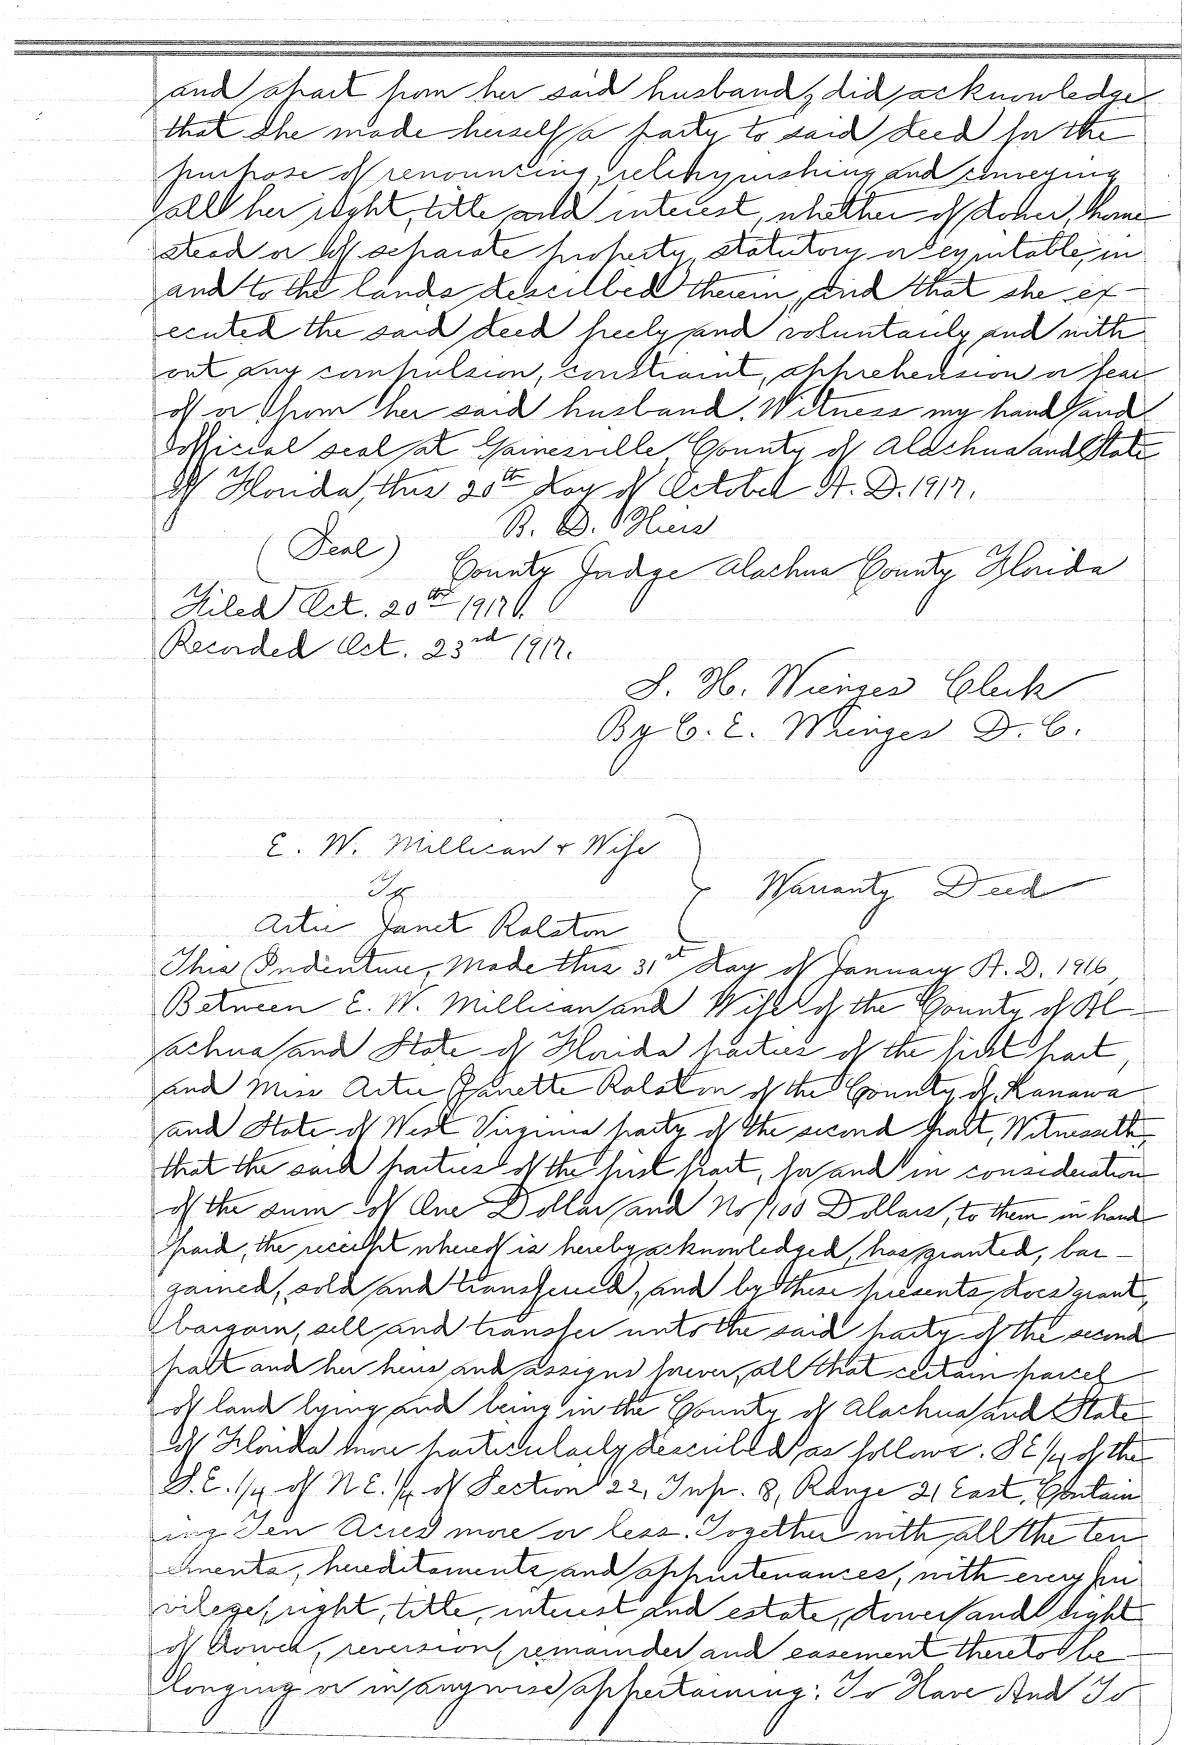 and apart from her said husband, did acknowledge
that she made herself a party to said deed for the
purpose of renouncing, relinquishing and conveying
all her right, title and interest, whether of dower, home
stead or of separate property, statutory or equitable, in
and to the lands described therein, and that she ex-
ecuted the said deed freely and voluntarily and with
out any compulsion, constraint, apprehension or fear
of or from her said husband. Witness my hand and
official seal at Gainesville, County of Alachua and State
of Florida, this 20th day of October A. D. 1917.
B. D. Hiers
(Seal)
County Judge Alachua County Florida
Filed Oct. 20th 1917.
Recorded Oct. 23rd 1917.
S. H. Wienges Clerk
By C. E. Wienges D. C.
E. W. Millican & Wife
To
Warranty Deed
Artie Janet Ralston
This Indenture, Made this 31st day of January A. D. 1916,
Between E. W. Millican and Wife of the County of Al-
achua and State of Florida parties of the first part,
and Miss Artie Janette Ralston of the County of Kanawa
and State of West Virginia party of the second part, Witnesseth,
that the said parties of the first part, for and in consideration
of the sum of One Dollar and No/100 Dollars, to them in hand
paid, the receipt whereof is hereby acknowledged, has granted, bar-
gained, sold and transferred, and by these presents does grant,
bargain, sell and transfer unto the said party of the second
part and her heirs and assigns forever, all that certain parcel
of land lying and being in the County of Alachua and State
of Florida more particularly described as follows. SE 1/4 of the
S.E. 1/4 of N E. 1/4 of Section 22, Twp. 8, Range 21 East, Contain
ing Ten Acres more or less. Together with all the ten
ements, hereditaments and appurtenances, with every pri
vilege, right, title, interest and estate, dower and right
of dower, reversion, remainder and easement thereto be-
longing or in anywise appertaining: To Have And To